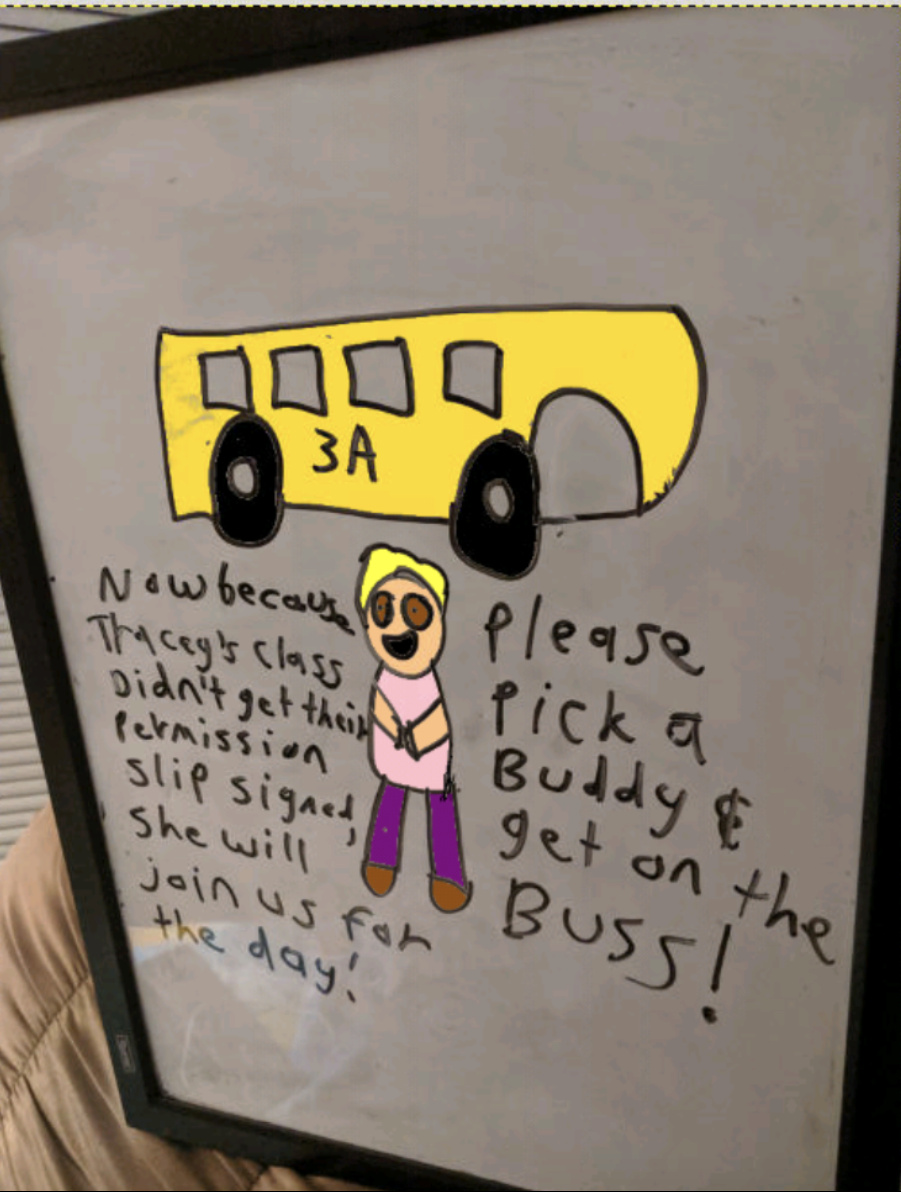 3A
Now because
Tracey's class
Didn't get their
Permission
slip signed,
she will
join us for
the day!
Please
Pick a
Buddy &
get on the
Buss!